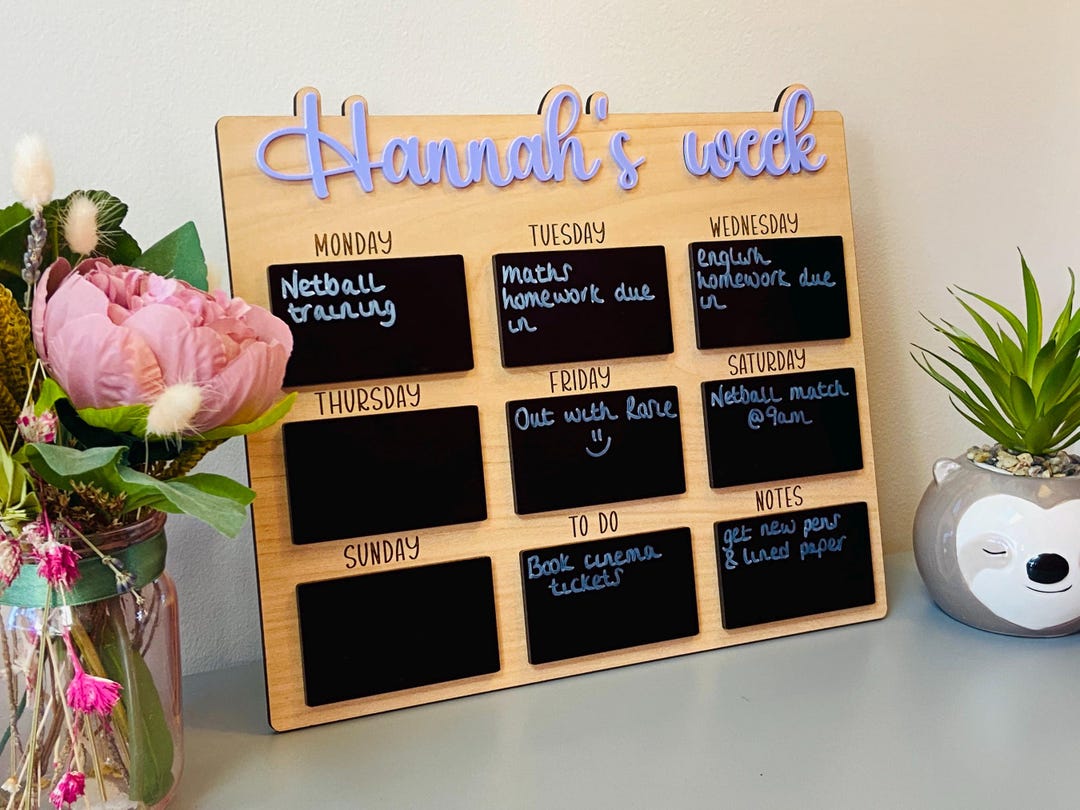 Hannah's week
MONDAY
Netball
training
TUESDAY
maths
homework due
in
WEDNESDAY
english
homework due
in
THURSDAY
FRIDAY
Out with Rosie
SATURDAY
Netball match
@9am
SUNDAY
TO DO
Book cinema
tickets
NOTES
get new pens
& lined paper